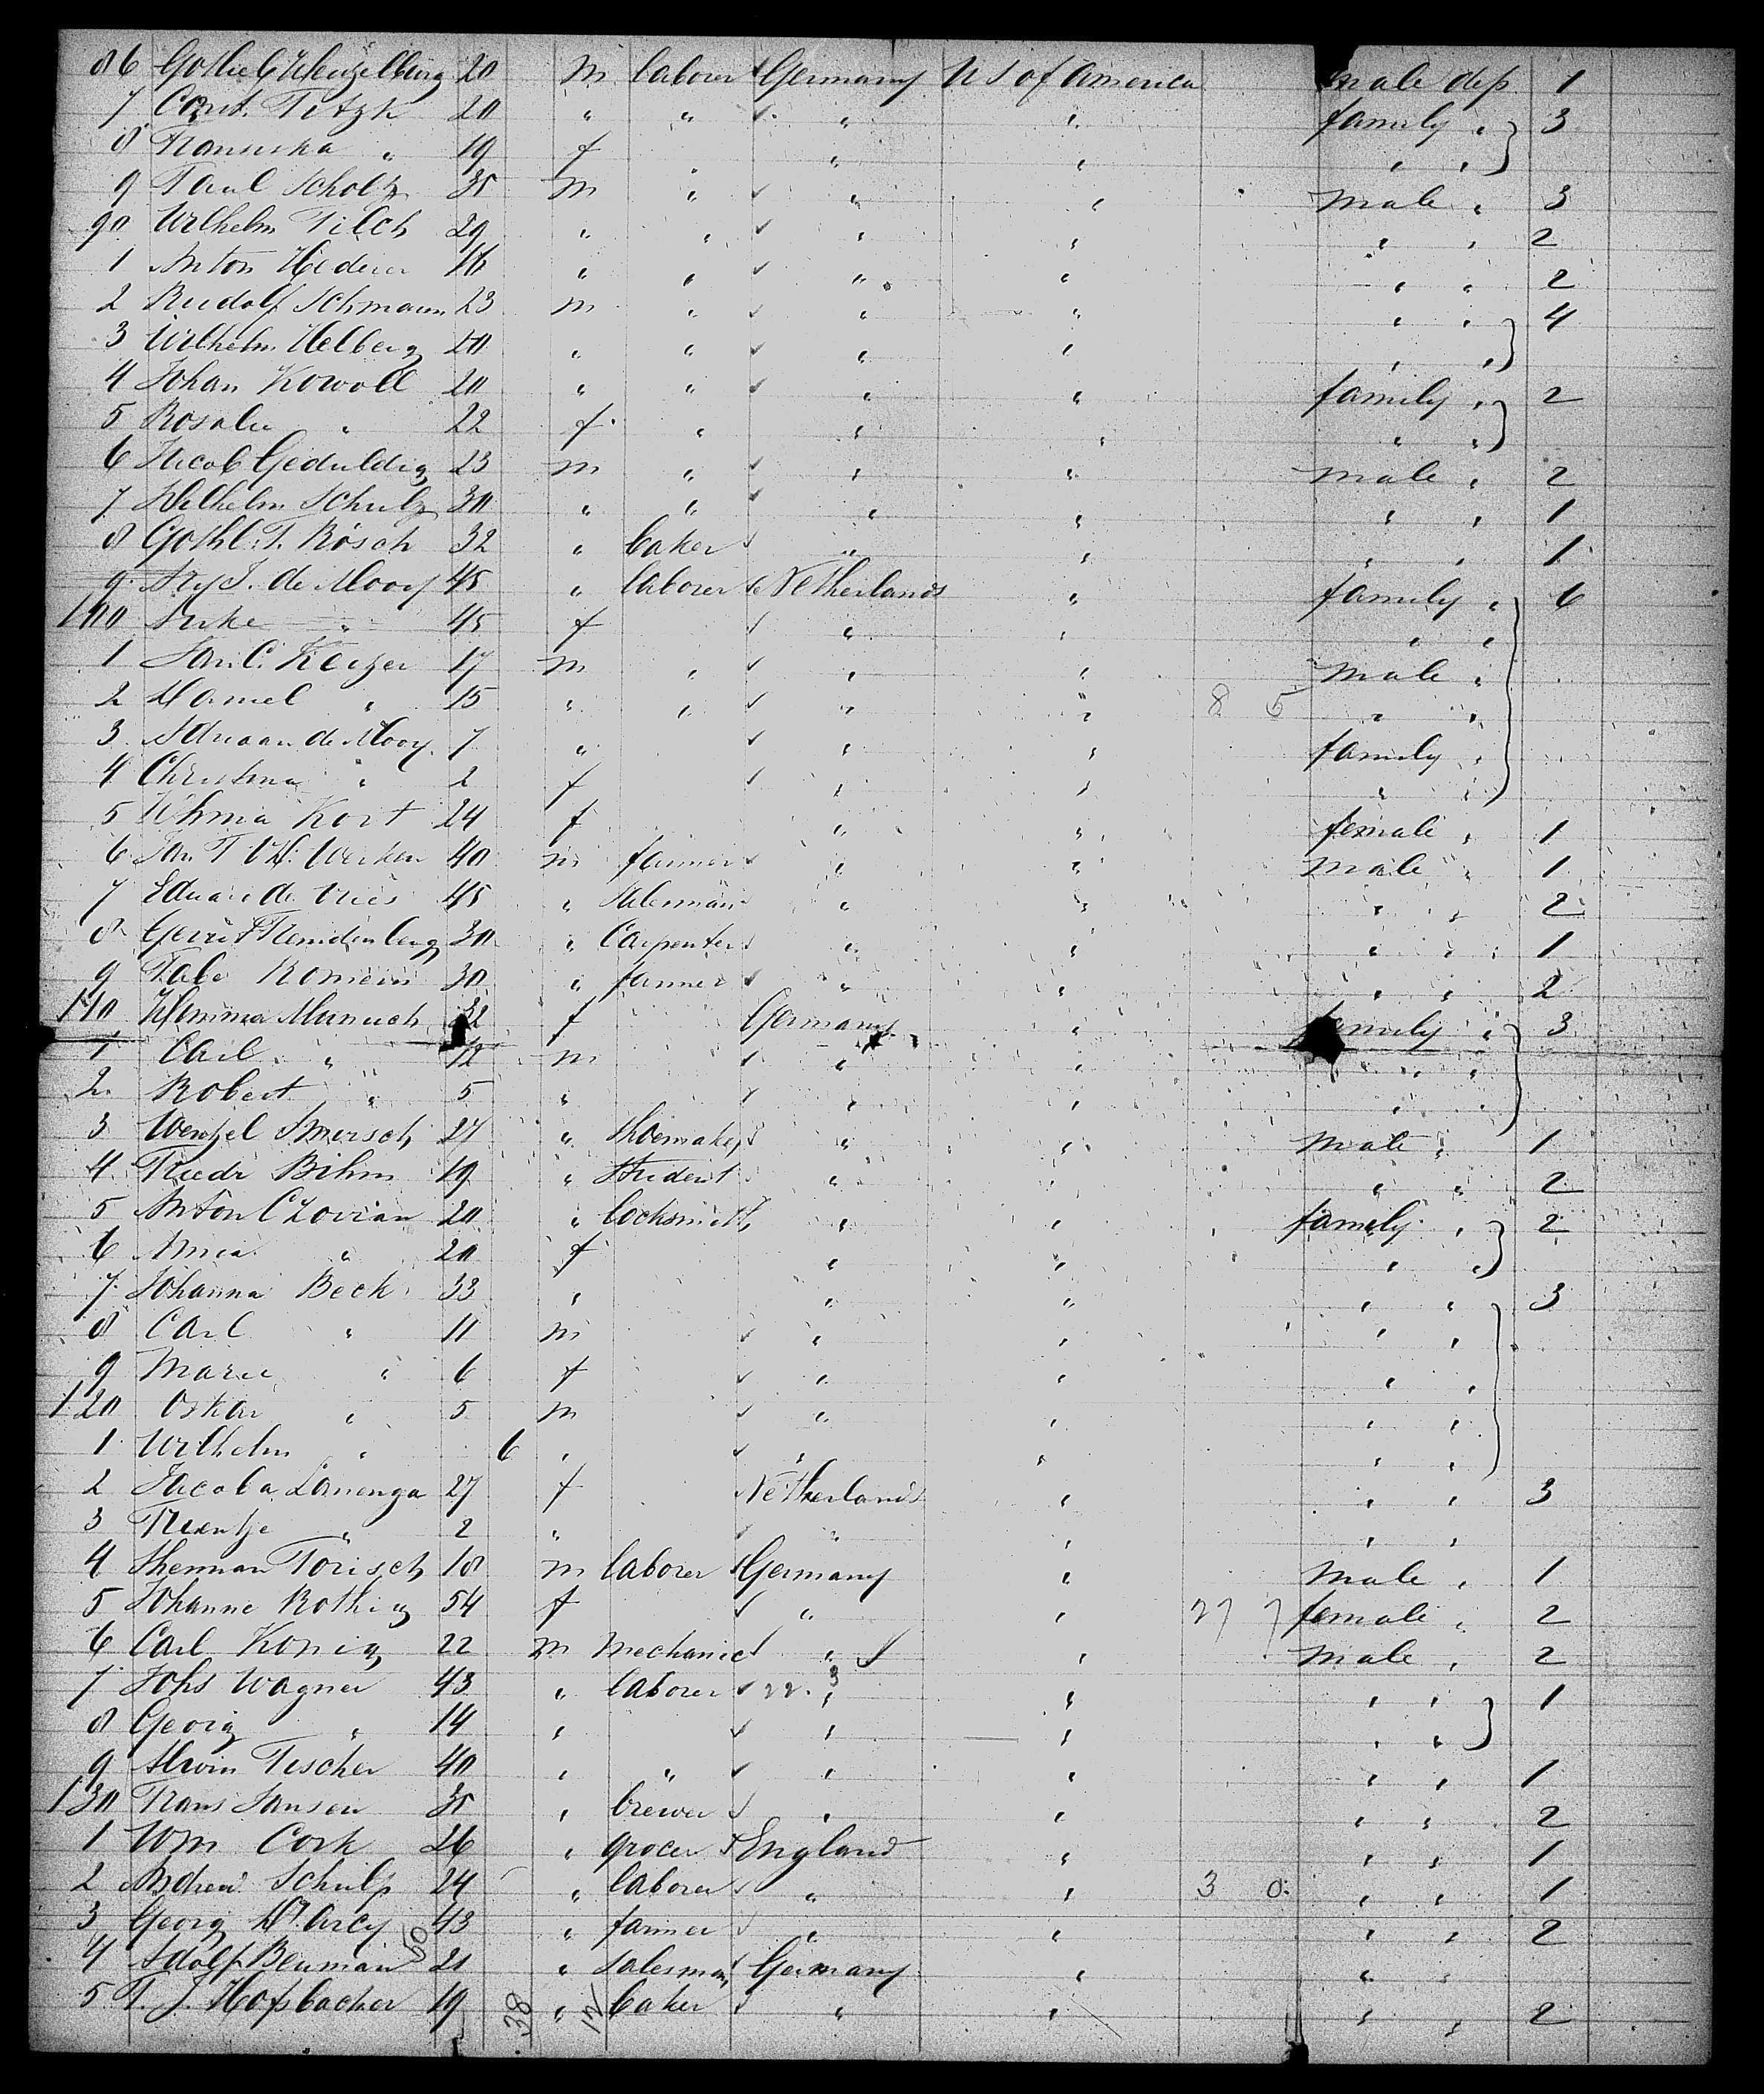 86 20 m laborer Germany U S of America male dep. 1
7 Const. Titzk 20 " " " " family " 3
8 Franziska " 19 f " " " "
9 Paul Scholz 35 m " " " male " 3
90 Wilhelm Pilch 29 " " " " " " 2
1 Anton Hederer 16 " " " " " " 2
2 Rudolf 23 m " " " " " 4
3 Wilhelm Helberg 20 " " " " " "
4 Johan Kowoll 20 " " " " family " 2
5 Rosalie " 22 f " " " " "
6 Jacob Geduldig 23 m " " " male " 2
7 Wilhelm Schulz 30 " " " " " " 1
8 Gothl. F. Rösch 32 " baker " " " " 1
9 Ary J. de Mooy 45 " laborer Netherlands " family " 6
100 " 45 f " " " "
1 Jan C. Keizer 17 m " " " male "
2 Daniel " 15 " " " " 8 5 " "
3 Adriaan de Mooy 7 " " " family "
4 Christina " 2 f " " " "
5 Kort 24 f " " female " 1
6 40 m farmer " " male " 1
7 Eduard de Vries 45 " " " " " 2
8 Gerrit 30 " Carpenter " " " " 1
9 Romein 30 " farmer " " " " 2
110 32 f Germany " family " 3
1 Carl " 12 m " " " "
2 Robert " 5 " " " "
3 Wenzel 27 " Shoemaker " " male " 1
4 Friedr Böhm 19 " Student " " " " 2
5 Anton 20 " locksmith " " family " 2
6 Anna " 20 f " " " "
7 Johanna Beck 33 " " " " " 3
8 Carl " 11 m " " " "
9 Marie " 6 f " " " "
120 Oskar " 5 m " " " "
1 Wilhelm " 6 " " " " "
2 Jacoba 27 f Netherlands " " " 3
3 Trientje " 2 " " " " "
4 Herman 18 m laborer Germany " male " 1
5 Johanne Rothig 54 f " " 27 7 female " 2
6 Carl König 22 m mechanic " " male " 2
7 Johs Wagner 43 " laborer 22. 3 " " " " 1
8 Georg " 14 " " " " "
9 Alwin Fischer 40 " " " " " " 1
130 Frans Jansen 35 " brewer " " " " 2
1 Wm Cork 26 " grocer England " " " 1
2 Andrew Schulp 24 " laborer " " 3 0 " " 1
3 Georg D'Arcy 43 " farmer " " " " 2
4 Adolf Bluman 21 " salesman Germany " " "
5 F. J. Hofsbacher 19 " baker " " " " 2
50 38 12